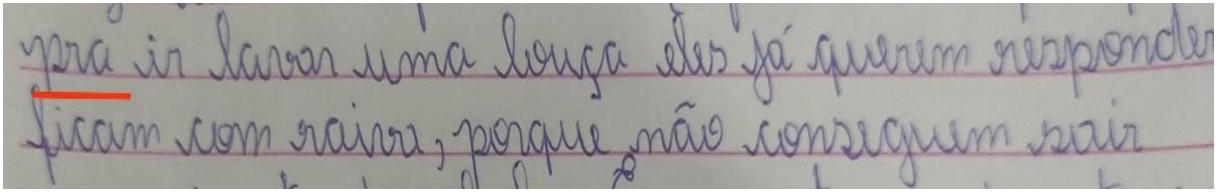 pra ir lavar uma louça eles já querem responder
ficam com raiva, porque não conseguem sair